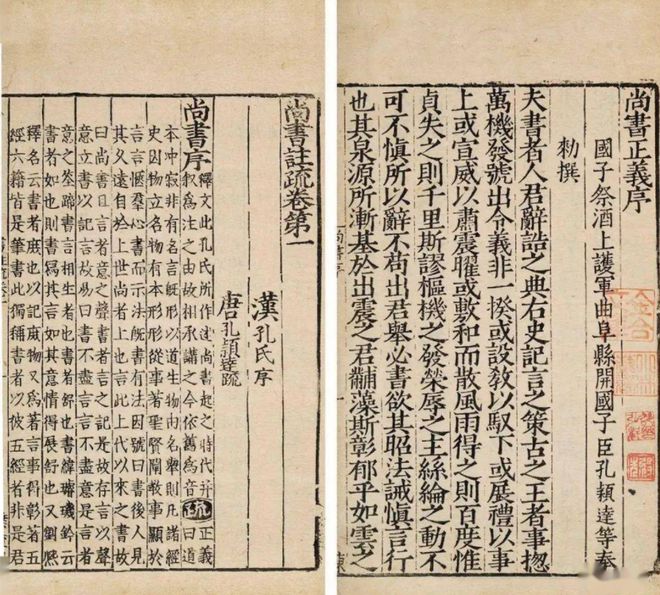 尚書正義序
國子祭酒上護軍曲阜縣開國子臣孔穎達等奉
勑撰
夫書者人君辭誥之典右史記言之策古之王者事揔
萬機發號出令義非一揆或設教以馭下或展禮以事
上或宣威以肅震曜或敷和而散風雨得之則百度惟
貞失之則千里斯謬樞機之發榮辱之主絲綸之動不
可不慎所以辭不苟出君舉必書欲其昭法誡慎言行
也其泉源所漸基於出震之君黼藻斯彰郁乎如雲之
尚書註疏卷第一
漢孔氏序
唐孔頴達疏
尚書序
釋文此孔氏所作述尚書起之時代并
叙爲注之由故相承講之今依舊爲音
疏
正義
曰道
本冲寂非有名言旣形以道生物由名舉則凡諸經
史因物立名物有本形形從事著聖賢闡教事顯於
言言愜羣心書而示法旣書有法因號曰書後人見
其久遠自於上世尚者上也言此上代以來之書故
曰尚書且言者意之聲書者言之記是故存言以聲
意立書以記言故易曰書不盡言言不盡意是言者
意之筌蹄書言相生者也書者舒也書緯璿璣鈐云
書者如也則書者寫其言如其意情得展舒也又劉熙
釋名云書者庶也以記庶物又爲著言事得彰著五
經六籍皆是筆書此獨稱書者以彼五經者非是君